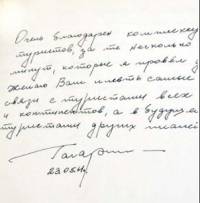 Очень благодарен комплексу
туристов, за те несколько
минут, которые я провёл у
желаю Вам иметь самые
связи с туристами всех
и континентов, а в будущем
туристами других плане
Гагарин